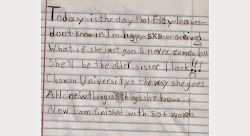 Today is the day that Eddy leaves
don't know if I'm happy SAD or
What if she just goes & never comes
She'll be the older sister I lack!!!
University's the way she goes
All new things she knows
Now I am finished with 50+ words